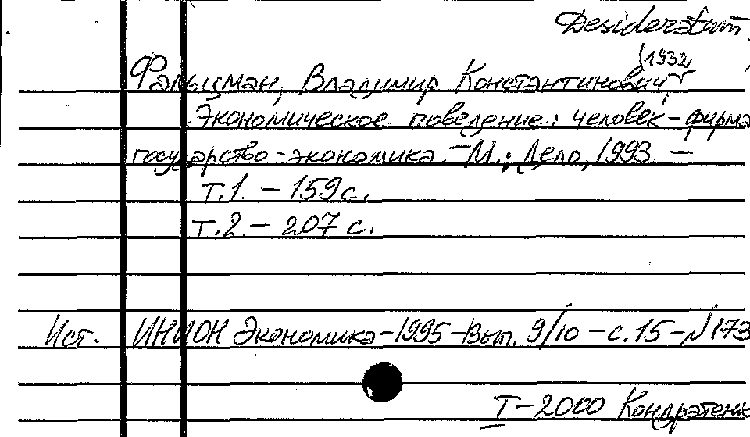 Desideratum
(1932)
Фальцман, Владимир Константинович
Экономическое поведение: человек-фирма
государство-экономика. - М.: Дело, 1993. -
Т.1. - 159 с.
Т.2. - 207 с.
Ист. ИНИОН Экономика-1995-Вып. 9/10 - с.15 - №173
I-2000 Кондратенк